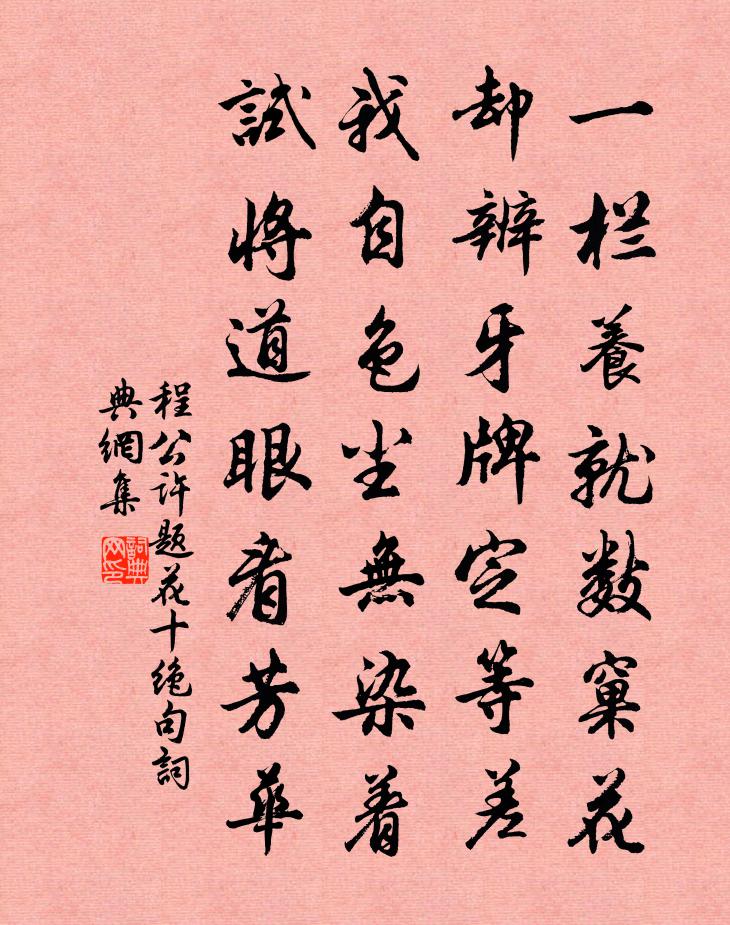 一栏養就数窠花
却辨牙牌定等差
我自色尘無染着
試将道眼看芳華
程公许題花十绝句詞
典網集
詞典网印